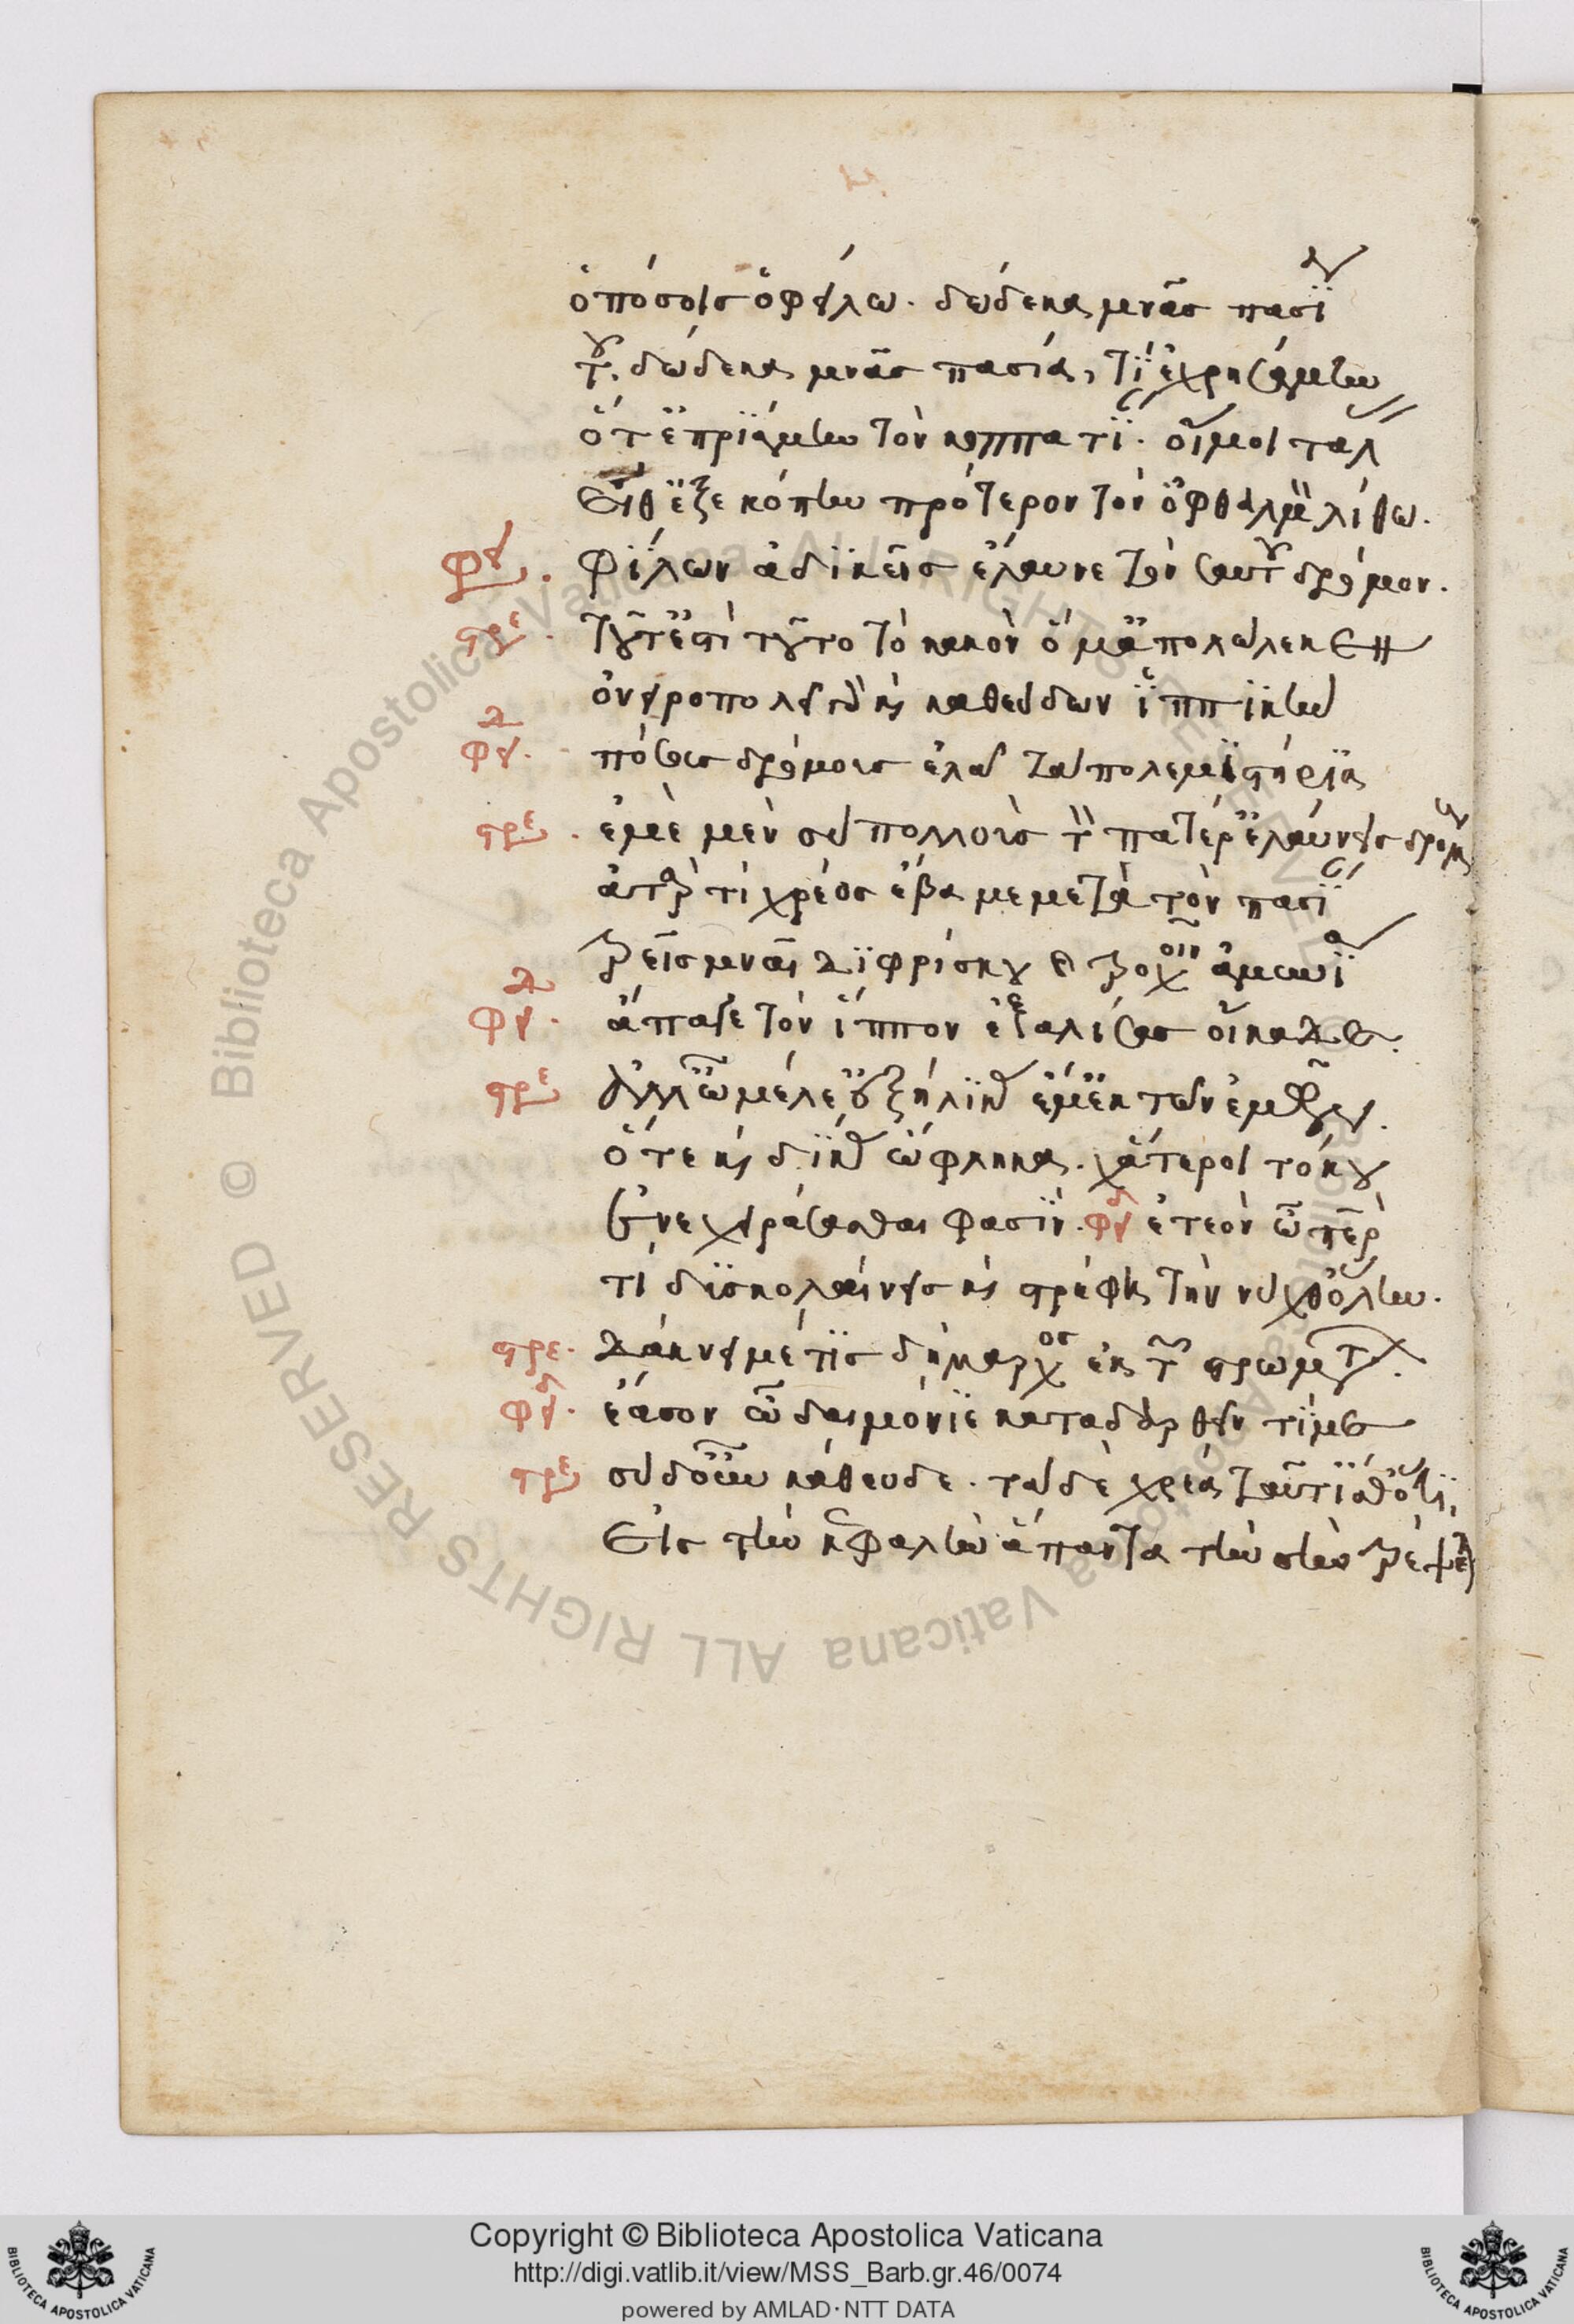 ὁπόσοις ὀφείλω. δώδεκα μνᾶς πασία
τοῦ. δώδεκα μνᾶς πασία, τί ἐχρησάμην
ὅτ' ἐπριάμην τὸν κοππατίαν. οἴμοι τάλας
εἴθ' ἐξεκόπην πρότερον τὸν ὀφθαλμὸν λίθω.
φει. φίλων ἀδικεῖς ἔλαυνε τὸν σαυτοῦ δρόμον.
στρε. τοῦτ' ἐστὶ τοῦτο τὸ κακὸν ὅ μ' ἀπολώλεκεν
ὀνειροπολεῖ γὰρ καὶ καθεύδων ἱππικήν
φειδ. πόσους δρόμους ἐλᾶ τὰ πολεμιστήρια
στρε. ἐμὲ μὲν σὺ πολλοὺς τὸν πατέρ' ἐλαύνεις δρόμους
ἀτὰρ τί χρέος ἔβα με μετὰ τὸν πασίαν
τρεῖς μναῖ διφρίσκου καὶ τροχοῖν ἀμυνία
φειδ. ἄπαγε τὸν ἵππον ἐξαλίσας οἴκαδε.
στρε. ἀλλ' ὦ μέλε' ἐξήλικας ἐμέ γ' ἐκ τῶν ἐμῶν.
ὅτε καὶ δίκας ὤφληκα. χἄτεροι τόκου
ἐνεχυράσασθαι φασίν. φειδ ἐτεὸν ὦ πάτερ
τί δυσκολαίνεις καὶ στρέφη τὴν νύχθ' ὅλην.
στρε. δάκνει μέ τις δήμαρχος ἐκ τῶν στρωμάτων.
φειδ. ἔασον ὦ δαιμόνιε καταδαρθεῖν τί με
στρε σὺ δ' οὖν κάθευδε. τὰ δὲ χρέα ταῦτ' ἴσθ' ὅτι,
εἰς τὴν κεφαλὴν ἅπαντα τὴν σὴν τρέψεται
Copyright © Biblioteca Apostolica Vaticana
http://digi.vatlib.it/view/MSS_Barb.gr.46/0074
powered by AMLAD·NTT DATA
BIBLIOTECA APOSTOLICA VATICANA
BIBLIOTECA APOSTOLICA VATICANA
© Biblioteca Apostolica Vaticana ALL RIGHTS RESERVED
© Biblioteca Apostolica Vaticana ALL RIGHTS RESERVED